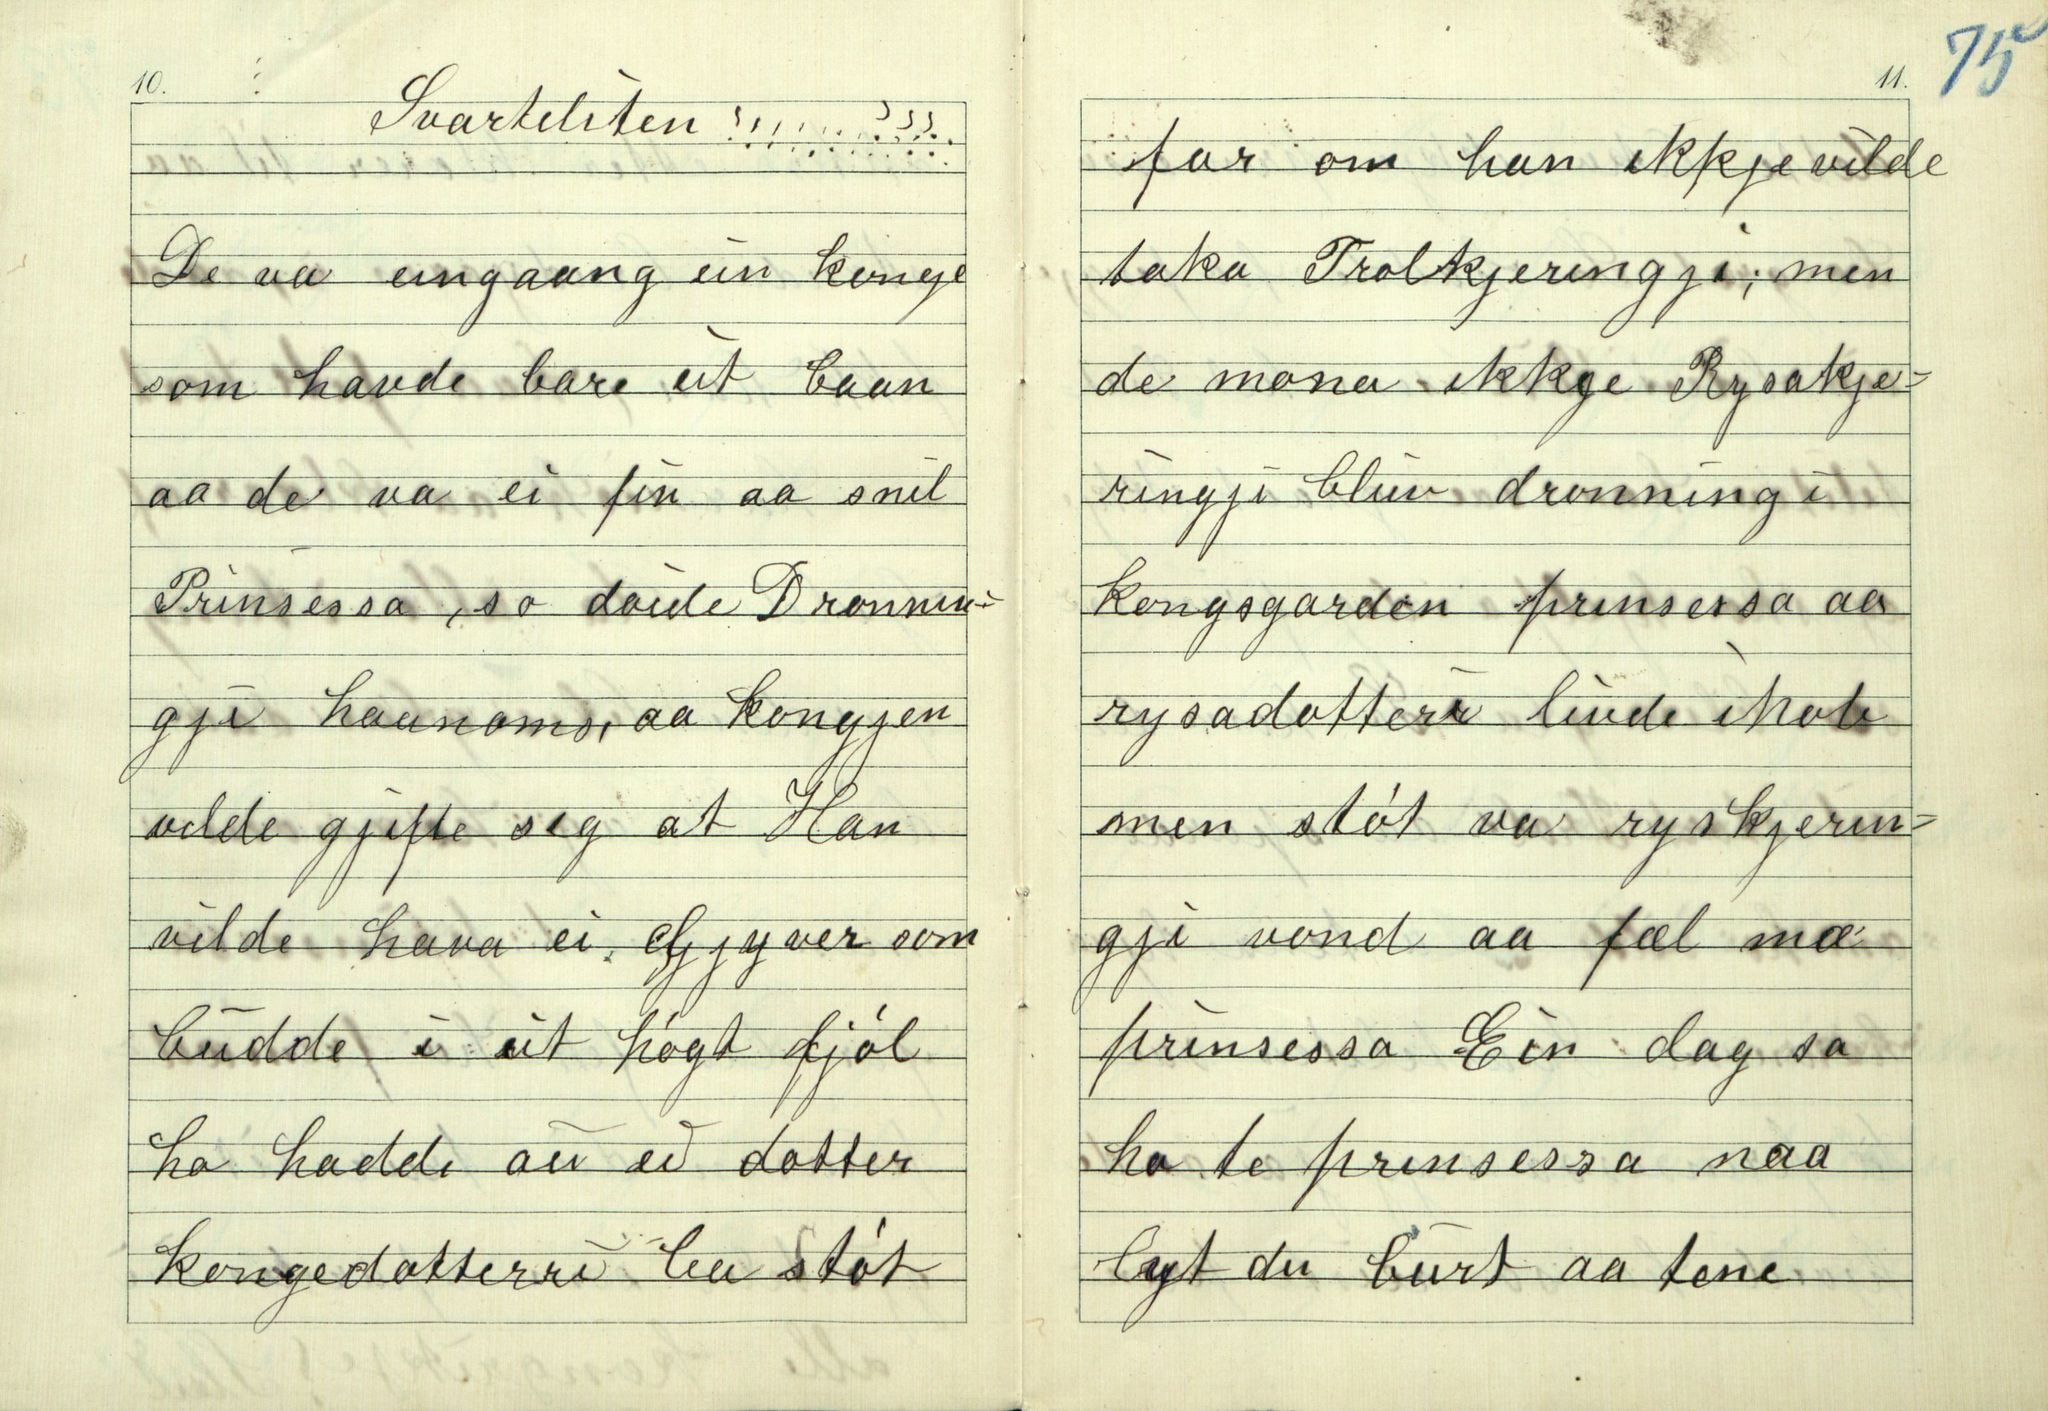 10.
Svarteliten
De va eingaang ein konge
som havde bare eit baan
aa de va ei fin aa snil
Prinsessa, so döide Dronnin-
gji haanoms, aa kongjen
vilde gjifte seg at Han
vilde hava ei Gjyver som
budde i eit högt fjöl
ho hadde au ei dotter
kongedotterri ba stöt
11.
75
far om han ikkje vilde
taka Trolkjeringji; men
de mona ikkje Rysakje-
ringji bleiv dronning i
kongsgarden prinsessa aa
rysadotteri livde i hob
men stöt va ryskjerin-
gji vond aa fæl mæ
prinsessa Ein dag sa
ho te prinsessa naa
lyt du burt aa tene